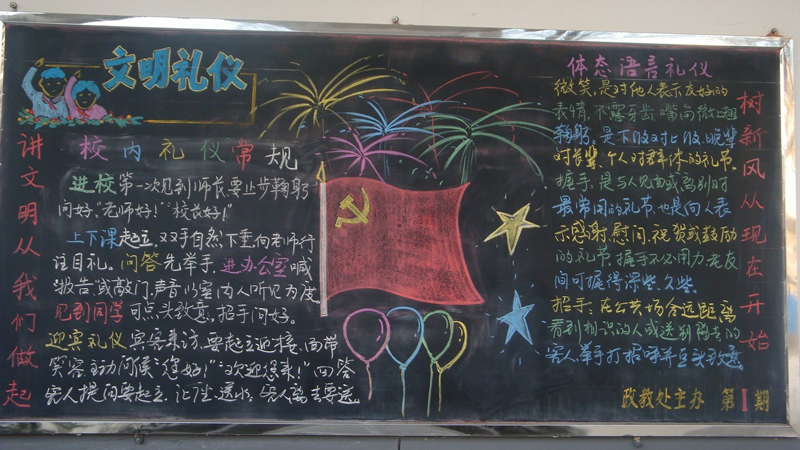 文明礼仪
讲文明从我们做起
校内礼仪常规
进校第一次见到师长要止步鞠躬
问好:“老师好!”“校长好!”
上下课起立,双手自然下垂向老师行
注目礼。问答先举手,进办公室喊
“报告”或敲门,声音以室内人听见为度
见到同学可点头致意,招手问好。
迎宾礼仪 宾客来访,要起立迎接,面带
笑容主动问候“您好!”“欢迎您来!”回答
客人提问要起立,让座,送水,客人离去要送。
体态语言礼仪
微笑,是对他人表示友好的
表情,不露牙齿,嘴角微上翘
鞠躬,是下级对上级、晚辈
对长辈、个人对群体的礼节。
握手,是与人见面或离别时
最常用的礼节,也是向人表
示感谢、慰问、祝贺或鼓励
的礼节,握手不必用力,老友
间可握得深些、久些。
招手:在公共场合远距离
看到相识的人或送别离去的
客人,举手打招呼并点头致意
树新风从现在开始
政教处主办 第1期